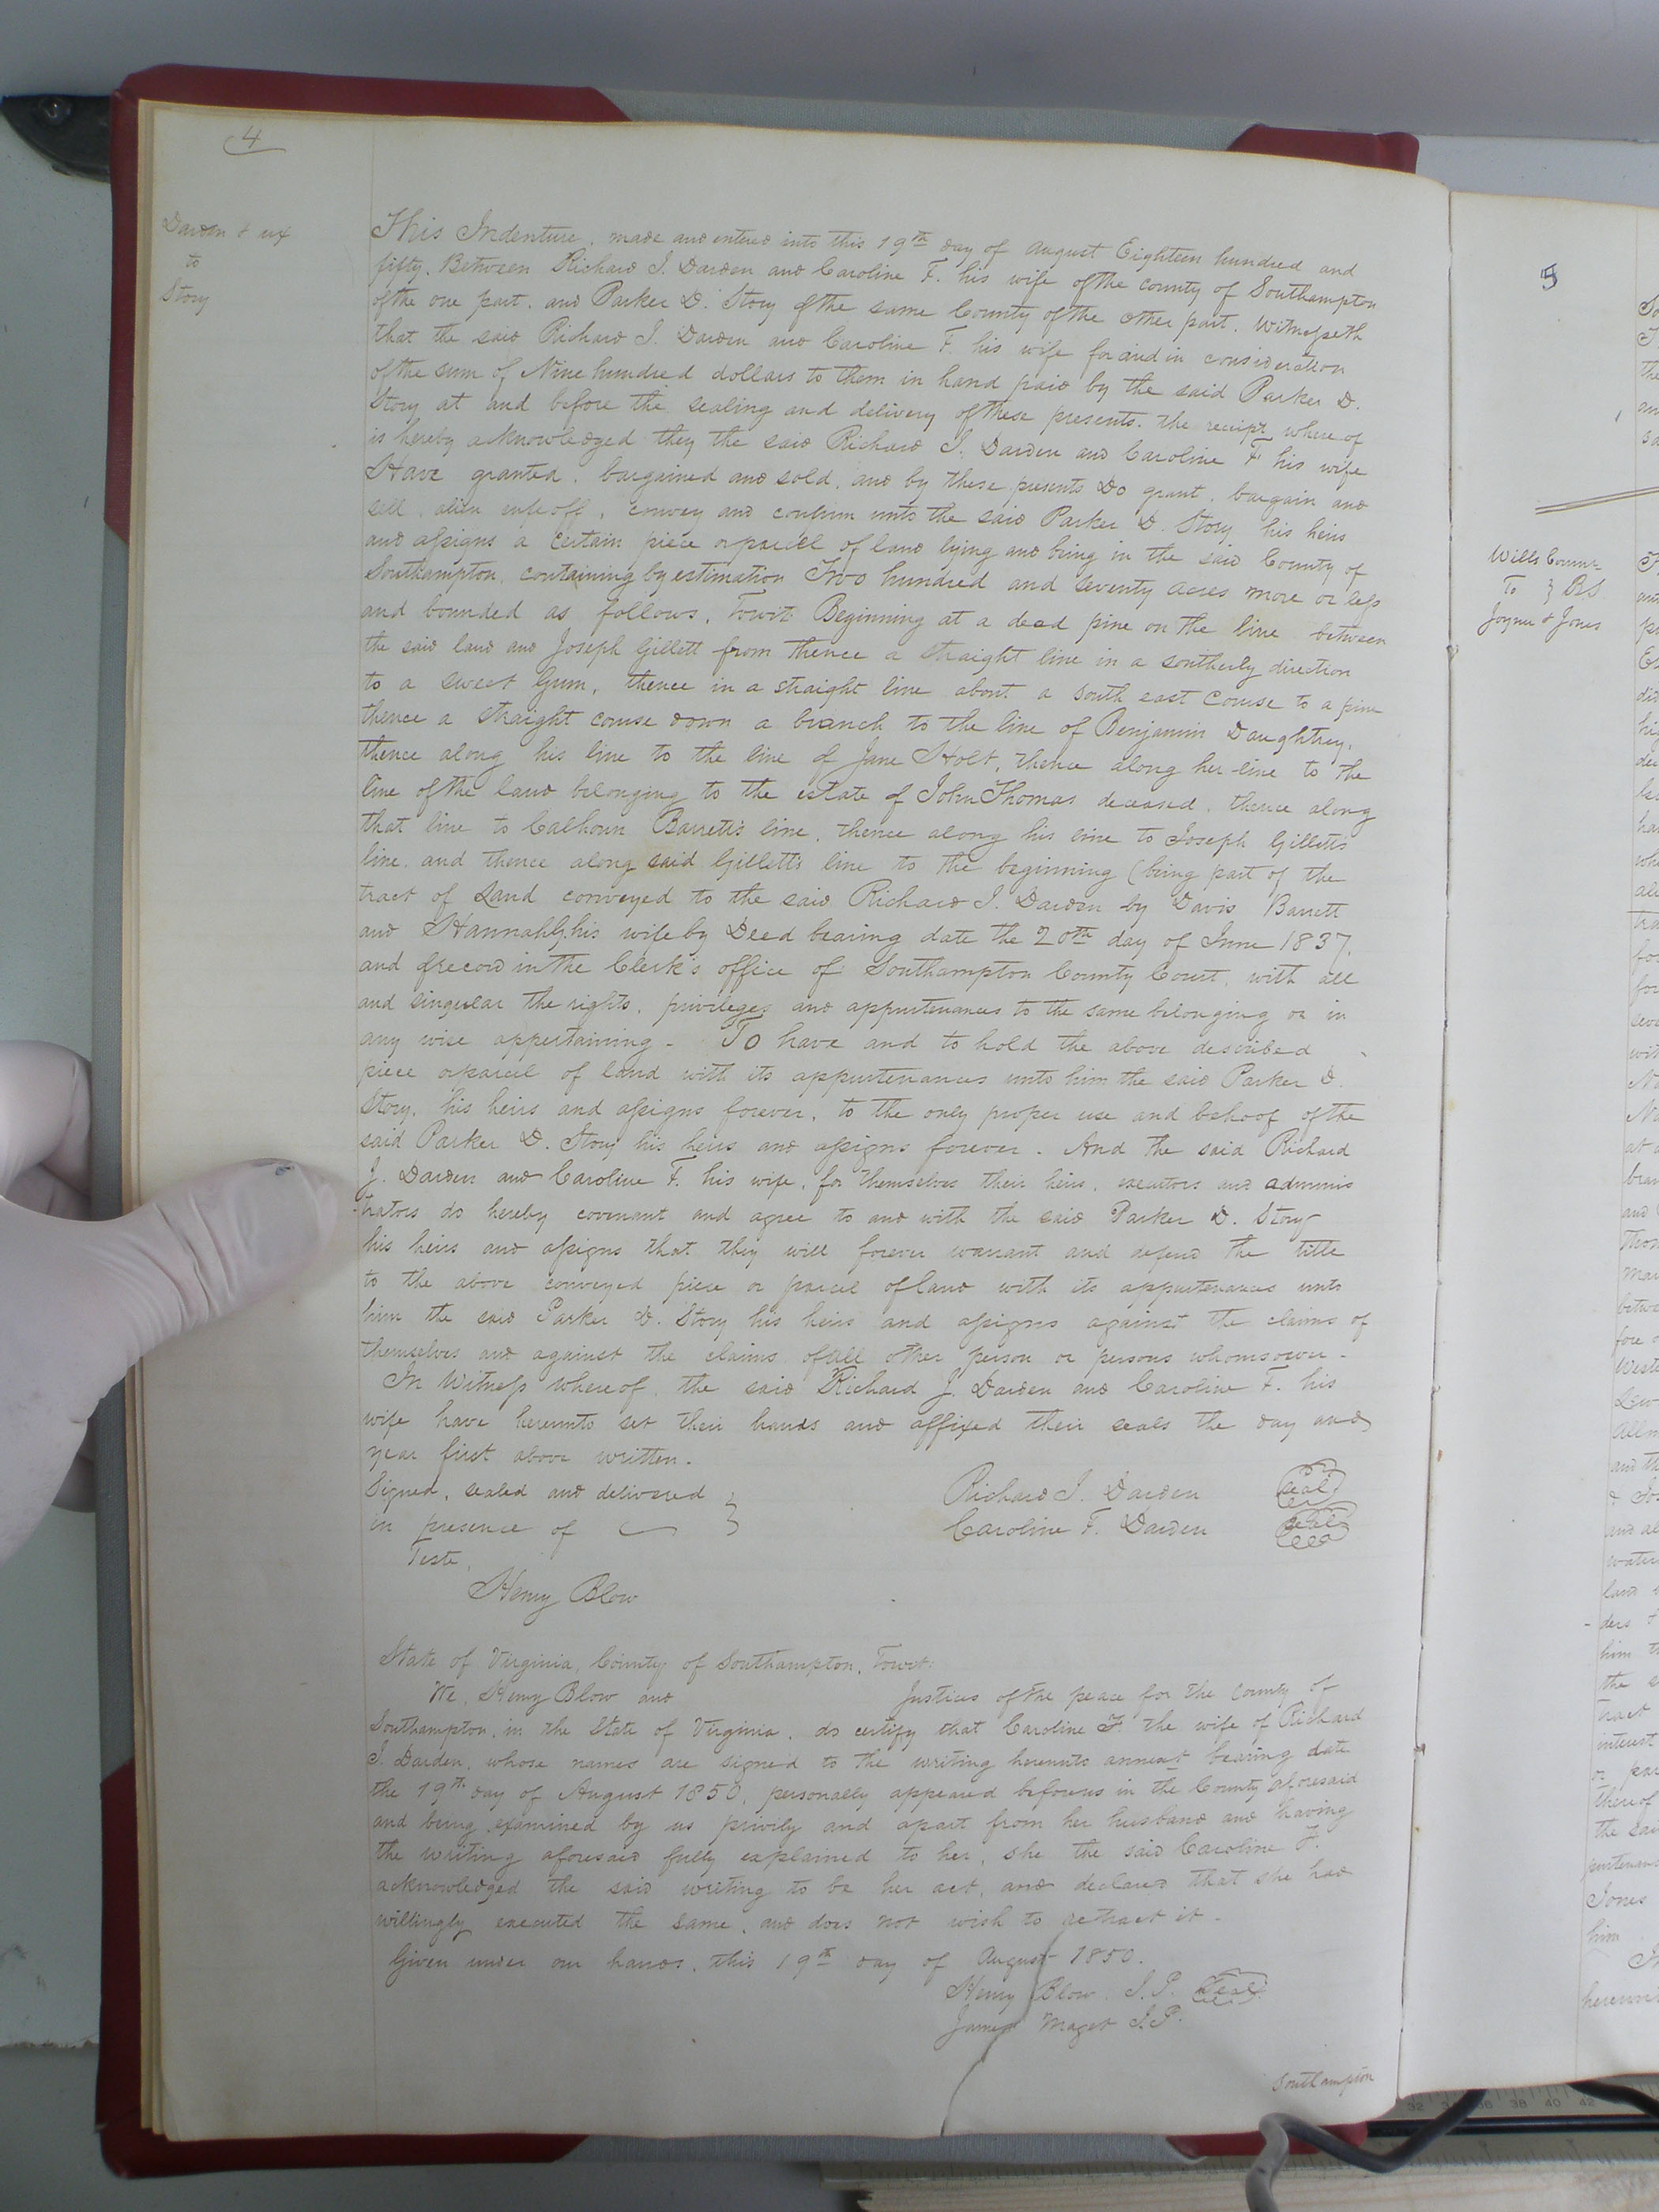 4
Darden & ux
to
Story
This Indenture, made and entered into this 19th day of August Eighteen hundred and
fifty. Between Richard J. Darden and Caroline F. his wife of the county of Southampton
of the one part, and Parker D. Story of the same County of the other part. Witnesseth
that the said Richard J. Darden and Caroline F. his wife for and in consideration
of the sum of Nine hundred dollars to them in hand paid by the said Parker D.
Story at and before the sealing and delivery of these presents. the receipt where of
is hereby acknowledged they the said Richard J. Darden and Caroline F his wife
Have granted, bargained and sold, and by these presents Do grant, bargain and
sell, alien enfeoff, convey and confirm unto the said Parker D. Story his heirs
and assigns a certain piece or parcel of land lying and being in the said County of
Southampton, containing by estimation Two hundred and seventy acres more or less
and bounded as follows, Towit: Beginning at a dead pine on the line between
the said land and Joseph Gillett from thence a straight line in a southerly direction
to a sweet Gum, thence in a straight line about a south east course to a pine
thence a straight course down a branch to the line of Benjamin Daughtrey,
thence along his line to the line of Jane Holt, thence along her line to the
line of the land belonging to the estate of John Thomas deceased, thence along
that line to Calhoun Barrett's line, thence along his line to Joseph Gilletts
line, and thence along said Gilletts line to the beginning (being part of the
tract of Land conveyed to the said Richard J. Darden by Davis Barrett
and Hannah his wife by Deed bearing date the 20th day of June 1837,
and of record in the Clerk's office of Southampton County Court, with all
and singular the rights, privileges and appurtenances to the same belonging or in
any wise appertaining - To have and to hold the above described
piece or parcel of land with its appurtenances unto him the said Parker D.
Story, his heirs and assigns forever, to the only proper use and behoof of the
said Parker D. Story his heirs and assigns forever. And the said Richard
J. Darden and Caroline F. his wife, for themselves their heirs, executors and adminis
-trators do hereby covenant and agree to and with the said Parker D. Story
his heirs and assigns that they will forever warrant and defend the title
to the above conveyed piece or parcel of land with its appurtenances unto
him the said Parker D. Story his heirs and assigns against the claims of
themselves and against the claims of all other person or persons whomsoever -
In Witness whereof, the said Richard J. Darden and Caroline F. his
wife have hereunto set their hands and affixed their seals the day and
year first above written.
Signed, sealed and delivered } Richard J. Darden seal
in presence of Caroline F. Darden seal
Teste,
Henry Blow
State of Virginia, County of Southampton, Towit:
We, Henry Blow and Justices of the peace for the County of
Southampton, in the State of Virginia, do certify that Caroline F. the wife of Richard
J. Darden, whose names are signed to the writing hereunto annext bearing date
the 19th day of August 1850, personally appeared before us in the County aforesaid
and being examined by us privily and apart from her husband and having
the writing aforesaid fully explained to her, she the said Caroline F.
acknowledged the said writing to be her act, and declared that she had
willingly executed the same, and does not wish to retract it -
Given under our hands, this 19th day of August 1850.
Henry Blow J.P. seal
James Maget J.P.
Southampton
5
Wills Comr
To } BS
Joyner & Jones